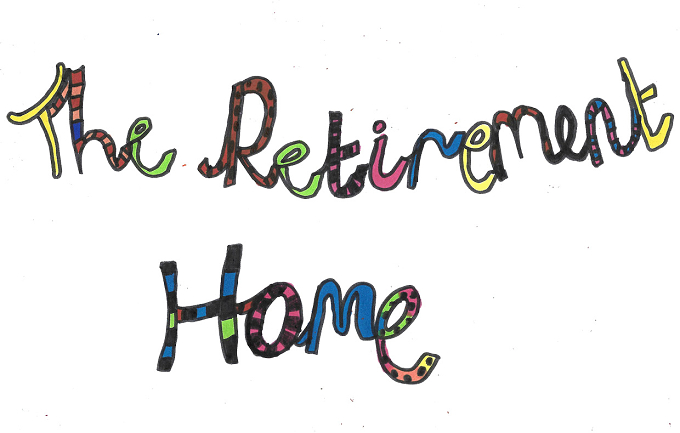 The Retirement
Home